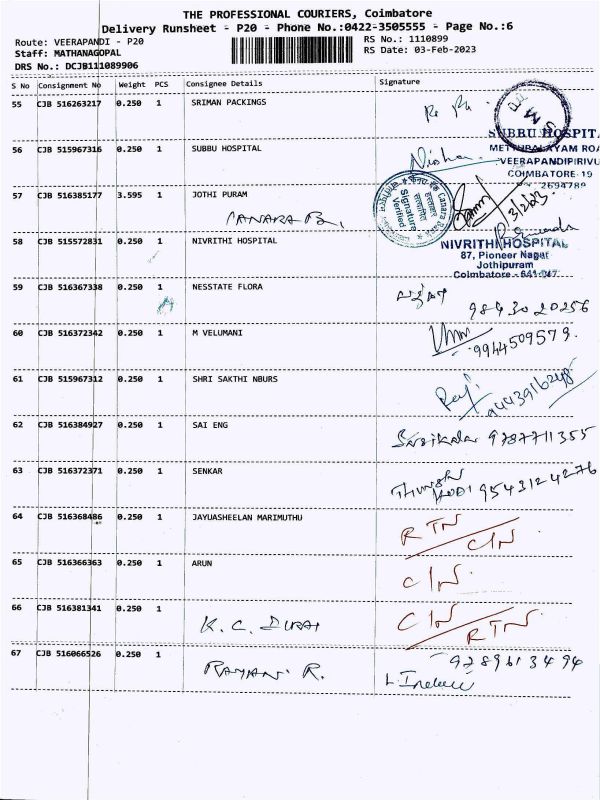 THE PROFESSIONAL COURIERS, Coimbatore
Delivery Runsheet - P20 - Phone No.:0422-3505555 - Page No.:6
Route: VEERAPANDI - P20
RS No.: 1110899
Staff: MATHANAGOPAL
RS Date: 03-Feb-2023
DRS No.: DCJB111089906
S No Consignment No Weight PCS Consignee Details Signature
55 CJB 516263217 0.250 1 SRIMAN PACKINGS
SUBBU HOSPITA
56 CJB 515967316 0.250 1 SUBBU HOSPITAL Nisha
METTUPALAYAM ROA
VEERAPANDIPIRIVU
COIMBATORE-19
2694789
57 CJB 516385177 3.595 1 JOTHI PURAM
CANARA B
Canara Bank
Signature
Verified
3/2/23
58 CJB 515572831 0.250 1 NIVRITHI HOSPITAL
NIVRITHI HOSPITAL
87, Pioneer Nagar
Jothipuram
Coimbatore - 641 047.
59 CJB 516367338 0.250 1 NESSTATE FLORA
98430 20256
60 CJB 516372342 0.250 1 M VELUMANI
9944509579.
61 CJB 515967312 0.250 1 SHRI SAKTHI NBURS
9443916248
62 CJB 516384927 0.250 1 SAI ENG
Sasikala 9787711355
63 CJB 516372371 0.250 1 SENKAR
9543124276
64 CJB 516368486 0.250 1 JAYUASHEELAN MARIMUTHU
RTN
C/N
65 CJB 516366363 0.250 1 ARUN
C/N
66 CJB 516381341 0.250 1
K. C. DURAI
C/N
RTN
67 CJB 516066526 0.250 1
RAYAN R.
9289613494